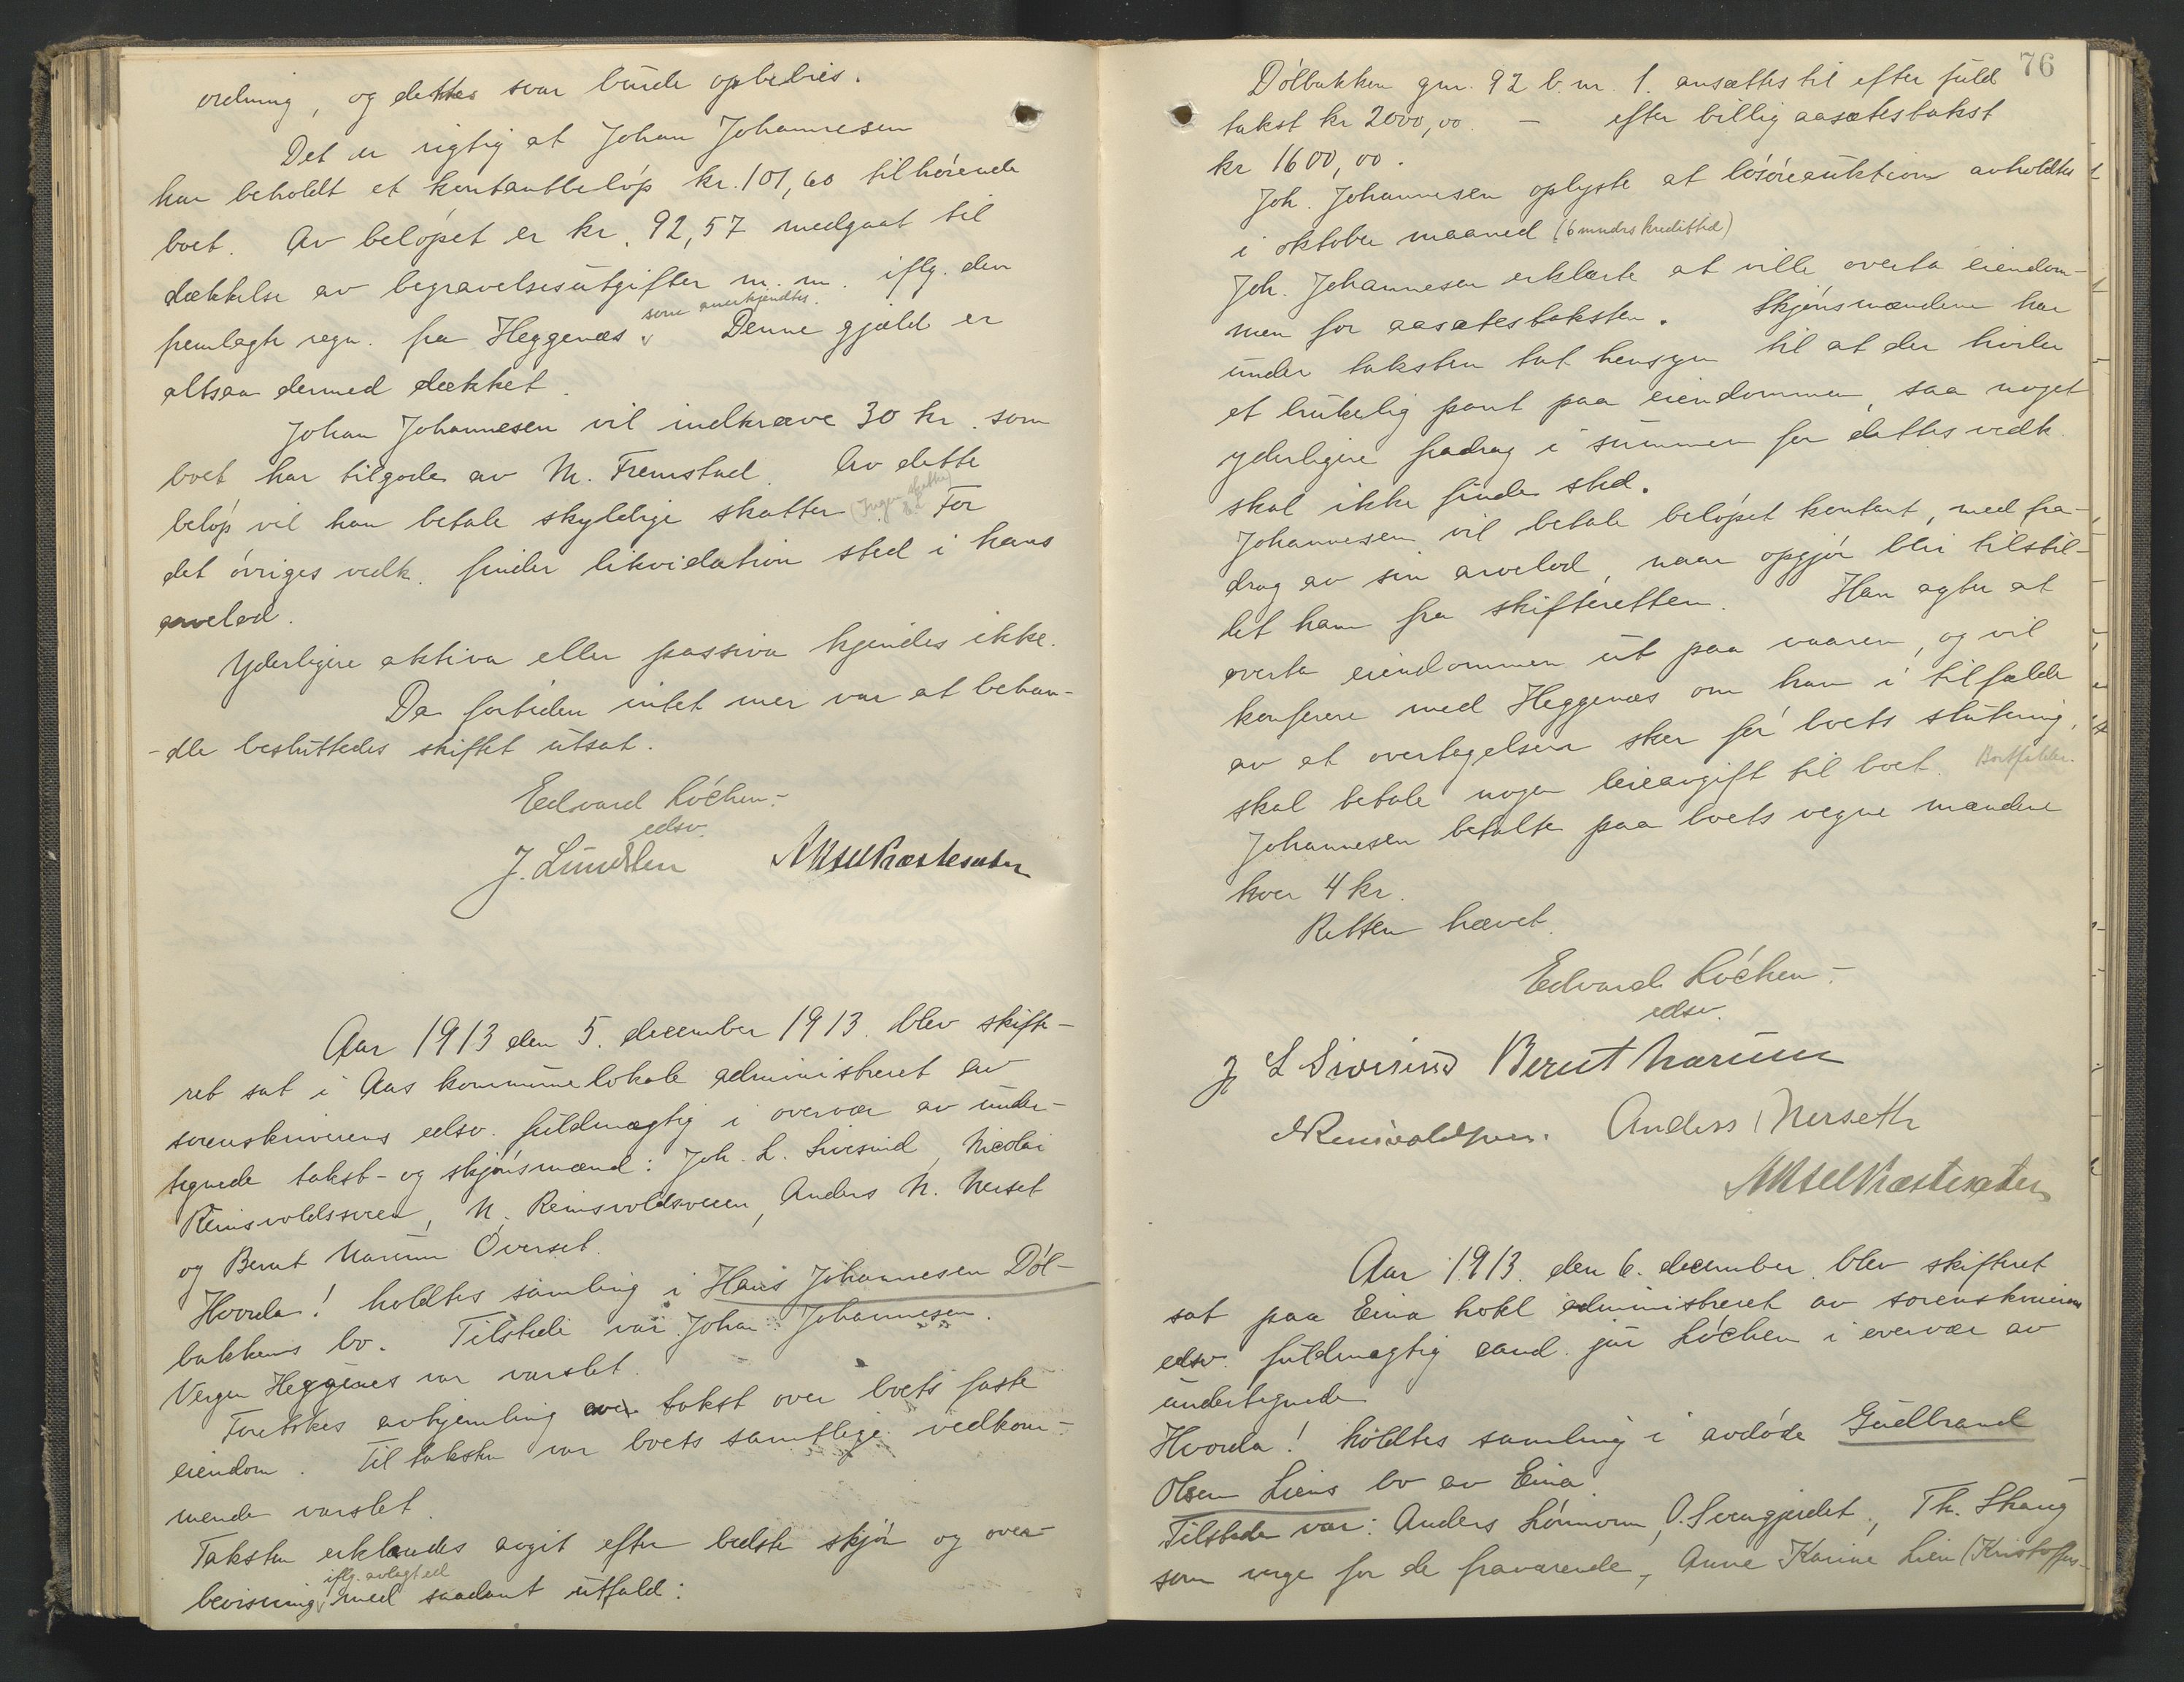 ordning, og dettes svar burde opbebies.
Det er rigtig at Johan Johannesen
har beholdt et kontantbeløp kr. 101,60 tilhørende
boet. Av beløpet er kr. 92,57 medgaat til
dækkelse av begravelsesutgifter m. m. iflg. den
som anerkjendtes.
fremlagte regn. fra Heggenæs. Denne gjæld er
altsaa dermed dækket.
Johan Johannesen vil indkræve 30 kr. som
boet har tilgode av M. Fremstad. Av dette
beløp vil han betale skyldige skatter (Ingen skatter) For
det øvriges vedk. finder likvidation sted i hans
arvelod.
Yderligere aktiva eller passiva kjendes ikke.
Da fortiden intet mer var at behan-
-dle besluttedes skiftet utsat.
Edvard Løchen.-
edsv.
J. Lundsten Aksel Præstesæter
Aar 1913 den 5. december 1913. blev skifte-
ret sat i Aas kommunelokale administreret av
sorenskriverens edsv. fuldmægtig i overvær av under-
tegnede takst- og skjønsmænd: Joh. L. Sivesind, Nicolai
Reinsvoldsveen, N. Reinsvoldsveen, Anders N. Nerset
og Bernt Narum Øverset.
Hvorda! holdtes samling i Hans Johannesen Døl-
bakkens bo. Tilstede var Johan Johannesen.
Vergen Heggenes var varslet.
Foretokes avhjemling av takst over boets faste
eiendom. Til taksten var boets samtlige vedkom-
mende varslet.
Taksten erklæredes avgit efter bedste skjøn og over-
iflg. avlagt ed
bevisning med saadant utfald:
76
Dølbakken gnr. 92 b. nr. 1. ansættes til efter fuld
takst kr 2000,00. - efter billig aasætestakst
kr 1600,00.
Joh. Johannesen oplyste at løsøreauktion avholdtes
i oktober maaned (6 mndrs kredittid)
Joh. Johannesen erklærte at ville overta eiendom-
men for aasætestaksten. Skjønsmændene har
under taksten tat hensyn til at der hviler
et brukelig pant paa eiendommen, saa noget
yderligere fradrag i summen for dettes vedk.
skal ikke finde sted.
Johannesen vil betale beløpet kontant, med fra-
drag av sin arvelod, naar opgjør blir tilstil-
let ham fra skifteretten. Han agter at
overta eiendommen ut paa vaaren, og vil
konferere med Heggenæs om han i tilfælde
av at overtagelsen sker før boets slutning,
skal betale nogen leieavgift til boet. Bortfalder.
Johannesen betalte paa boets vegne mændene
hver 4 kr.
Retten hævet.
Edvard Løchen.-
edsv.
J L Sivesind Bernt Narum
N Reinsvoldsveen. Anders Nerseth
Aksel Præstesæter
Aar 1913. den 6. december blev skifteret
sat paa Eina hotel administreret av sorenskriverens
edsv. fuldmægtig cand. jur Løchen i overvær av
undertegnede
Hvorda! holdtes samling i avdøde Gudbrand
Olsen Liens bo av Eina.
Tilstede var: Anders Lønnvem, O. Svengjerdet, Th. Skaug
som verge for de fraværende, Anne Karine Lien (Kristoffers-